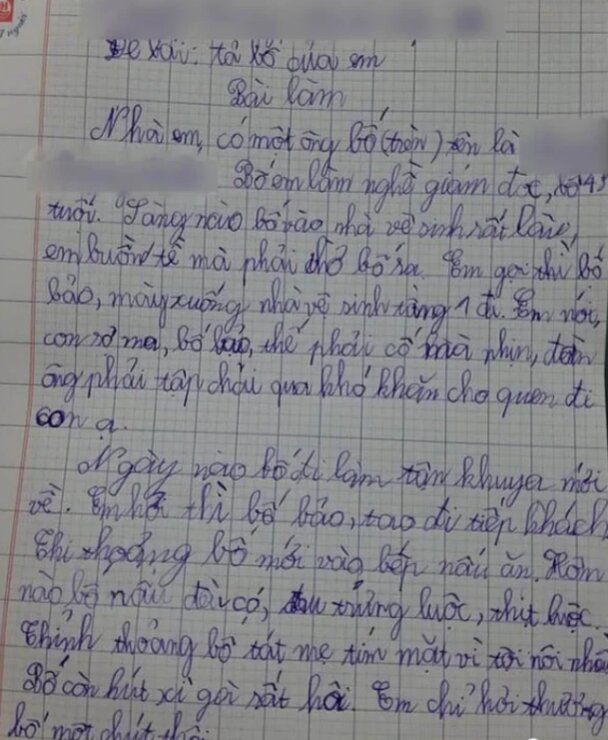 Đề bài: tả bố của em
Bài làm
Nhà em, có một ông bố (tròn) tên là
Bố em làm nghề giám đốc, bố 45
tuổi. Sáng nào bố vào nhà vệ sinh rất lâu,
em buồn tè mà phải chờ bố ra. Em gọi thì bố
bảo, mày xuống nhà vệ sinh tầng 1 đi. Em nói,
con sợ ma, bố bảo, thế phải cố mà nhịn, đàn
ông phải tập chải qua khó khăn cho quen đi
con ạ.
Ngày nào bố đi làm tận khuya mới
về. Em hỏi thì bố bảo, tao đi tiếp khách
Thi thoảng bố mới vào bếp nấu ăn. Hôm
nào bố nấu đài có, trứng luộc, thịt luộc.
Thỉnh thoảng bố tát mẹ tím mặt vì tội nói nhiều
Bố còn hút xì gời rất hôi. Em chỉ hơi thương
bố một chút thôi